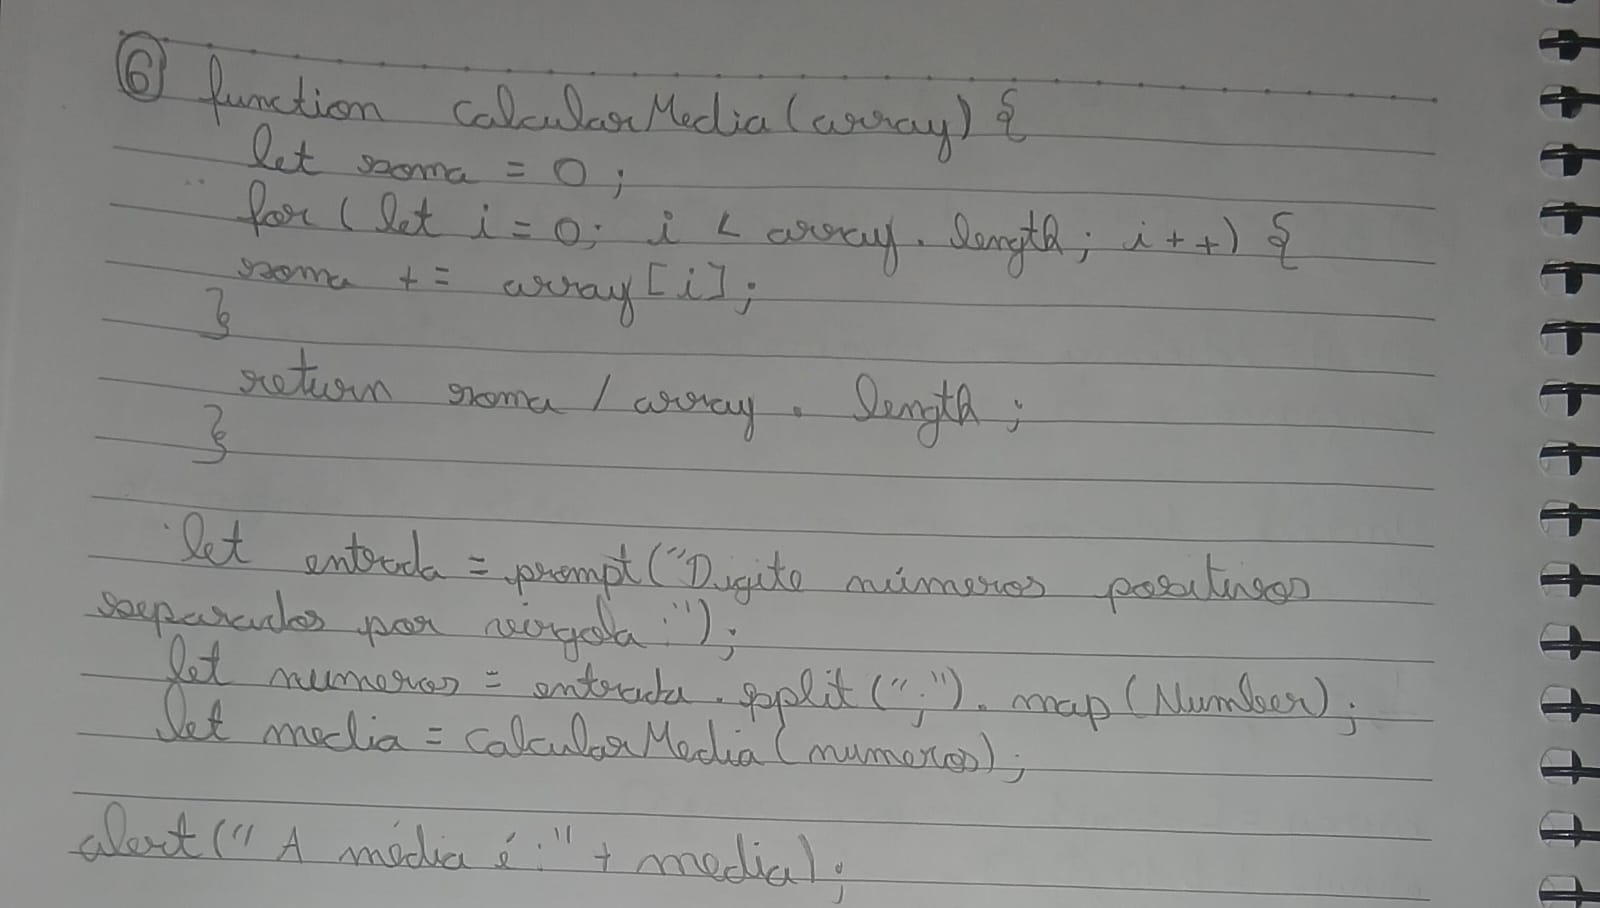 6 function calcularMedia(array) {
let soma = 0;
for (let i = 0; i < array.length; i++) {
soma += array[i];
}
return soma / array.length;
}
let entrada = prompt("Digite números positivos
separados por vírgola:");
let numeros = entrada.split(";").map(Number);
let media = calcularMedia(numeros);
alert("A média é:" + media);